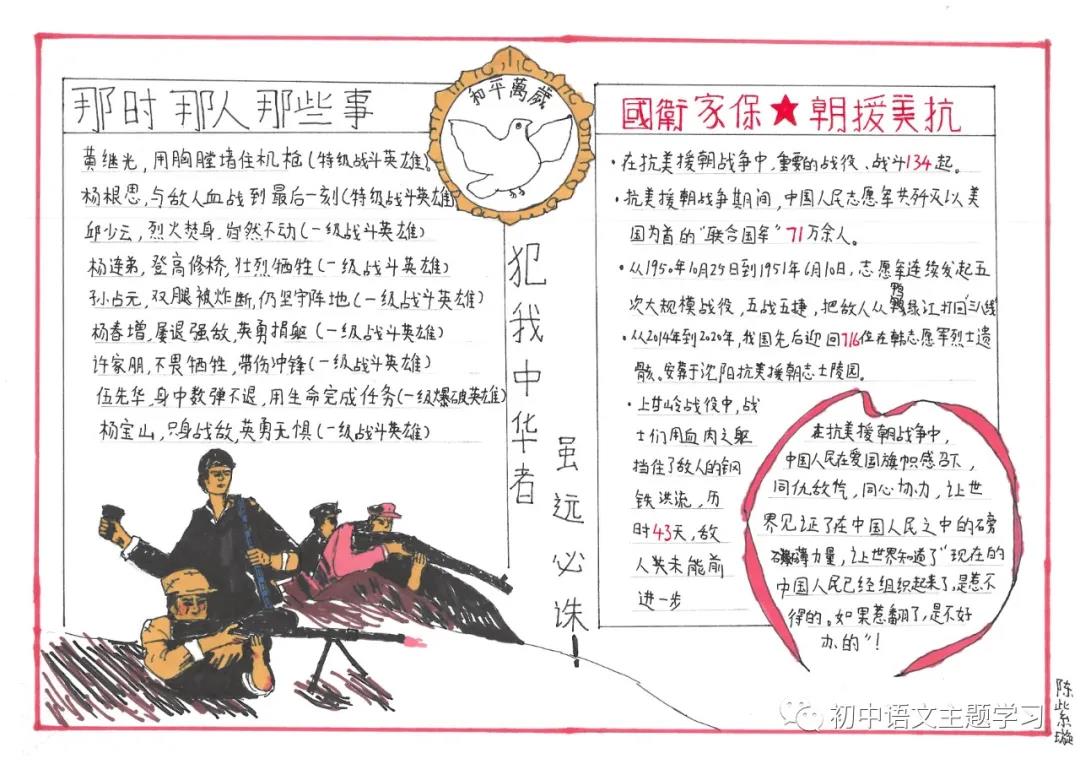 那时那人那些事
黄继光，用胸膛堵住机枪(特级战斗英雄)
杨根思，与敌人血战到最后一刻(特级战斗英雄)
邱少云，烈火焚身，岿然不动(一级战斗英雄)
杨连弟，登高修桥，壮烈牺牲(一级战斗英雄)
孙占元，双腿被炸断，仍坚守阵地(一级战斗英雄)
杨春增，屡退强敌，英勇捐躯(一级战斗英雄)
许家朋，不畏牺牲，带伤冲锋(一级战斗英雄)
伍先华，身中数弹不退，用生命完成任务(一级爆破英雄)
杨宝山，只身战敌，英勇无惧(一级战斗英雄)
和平萬歲
犯我中华者
虽远必诛！
國衛家保★朝援美抗
·在抗美援朝战争中，重要的战役、战斗134起。
·抗美援朝战争期间，中国人民志愿军共歼灭以美
国为首的“联合国军”71万余人。
·从1950年10月25日到1951年6月10日，志愿军连续发起五
次大规模战役，五战五捷，把敌人从鸭绿江打回“三八线
·从2014年到2020年，我国先后迎回716位在韩志愿军烈士遗
骸。安葬于沈阳抗美援朝志士陵园。
·上甘岭战役中，战
士们用血肉之躯
挡住了敌人的钢
铁洪流，历
时43天，敌
人共未能前
进一步
在抗美援朝战争中，
中国人民在爱国旗帜感召下，
同仇敌忾，同心协力，让世
界见证了在中国人民之中的磅
礴力量，让世界知道了“现在的
中国人民已经组织起来了，是惹不
得的。如果惹翻了，是不好
办的”！
初中语文主题学习
陈紫璇